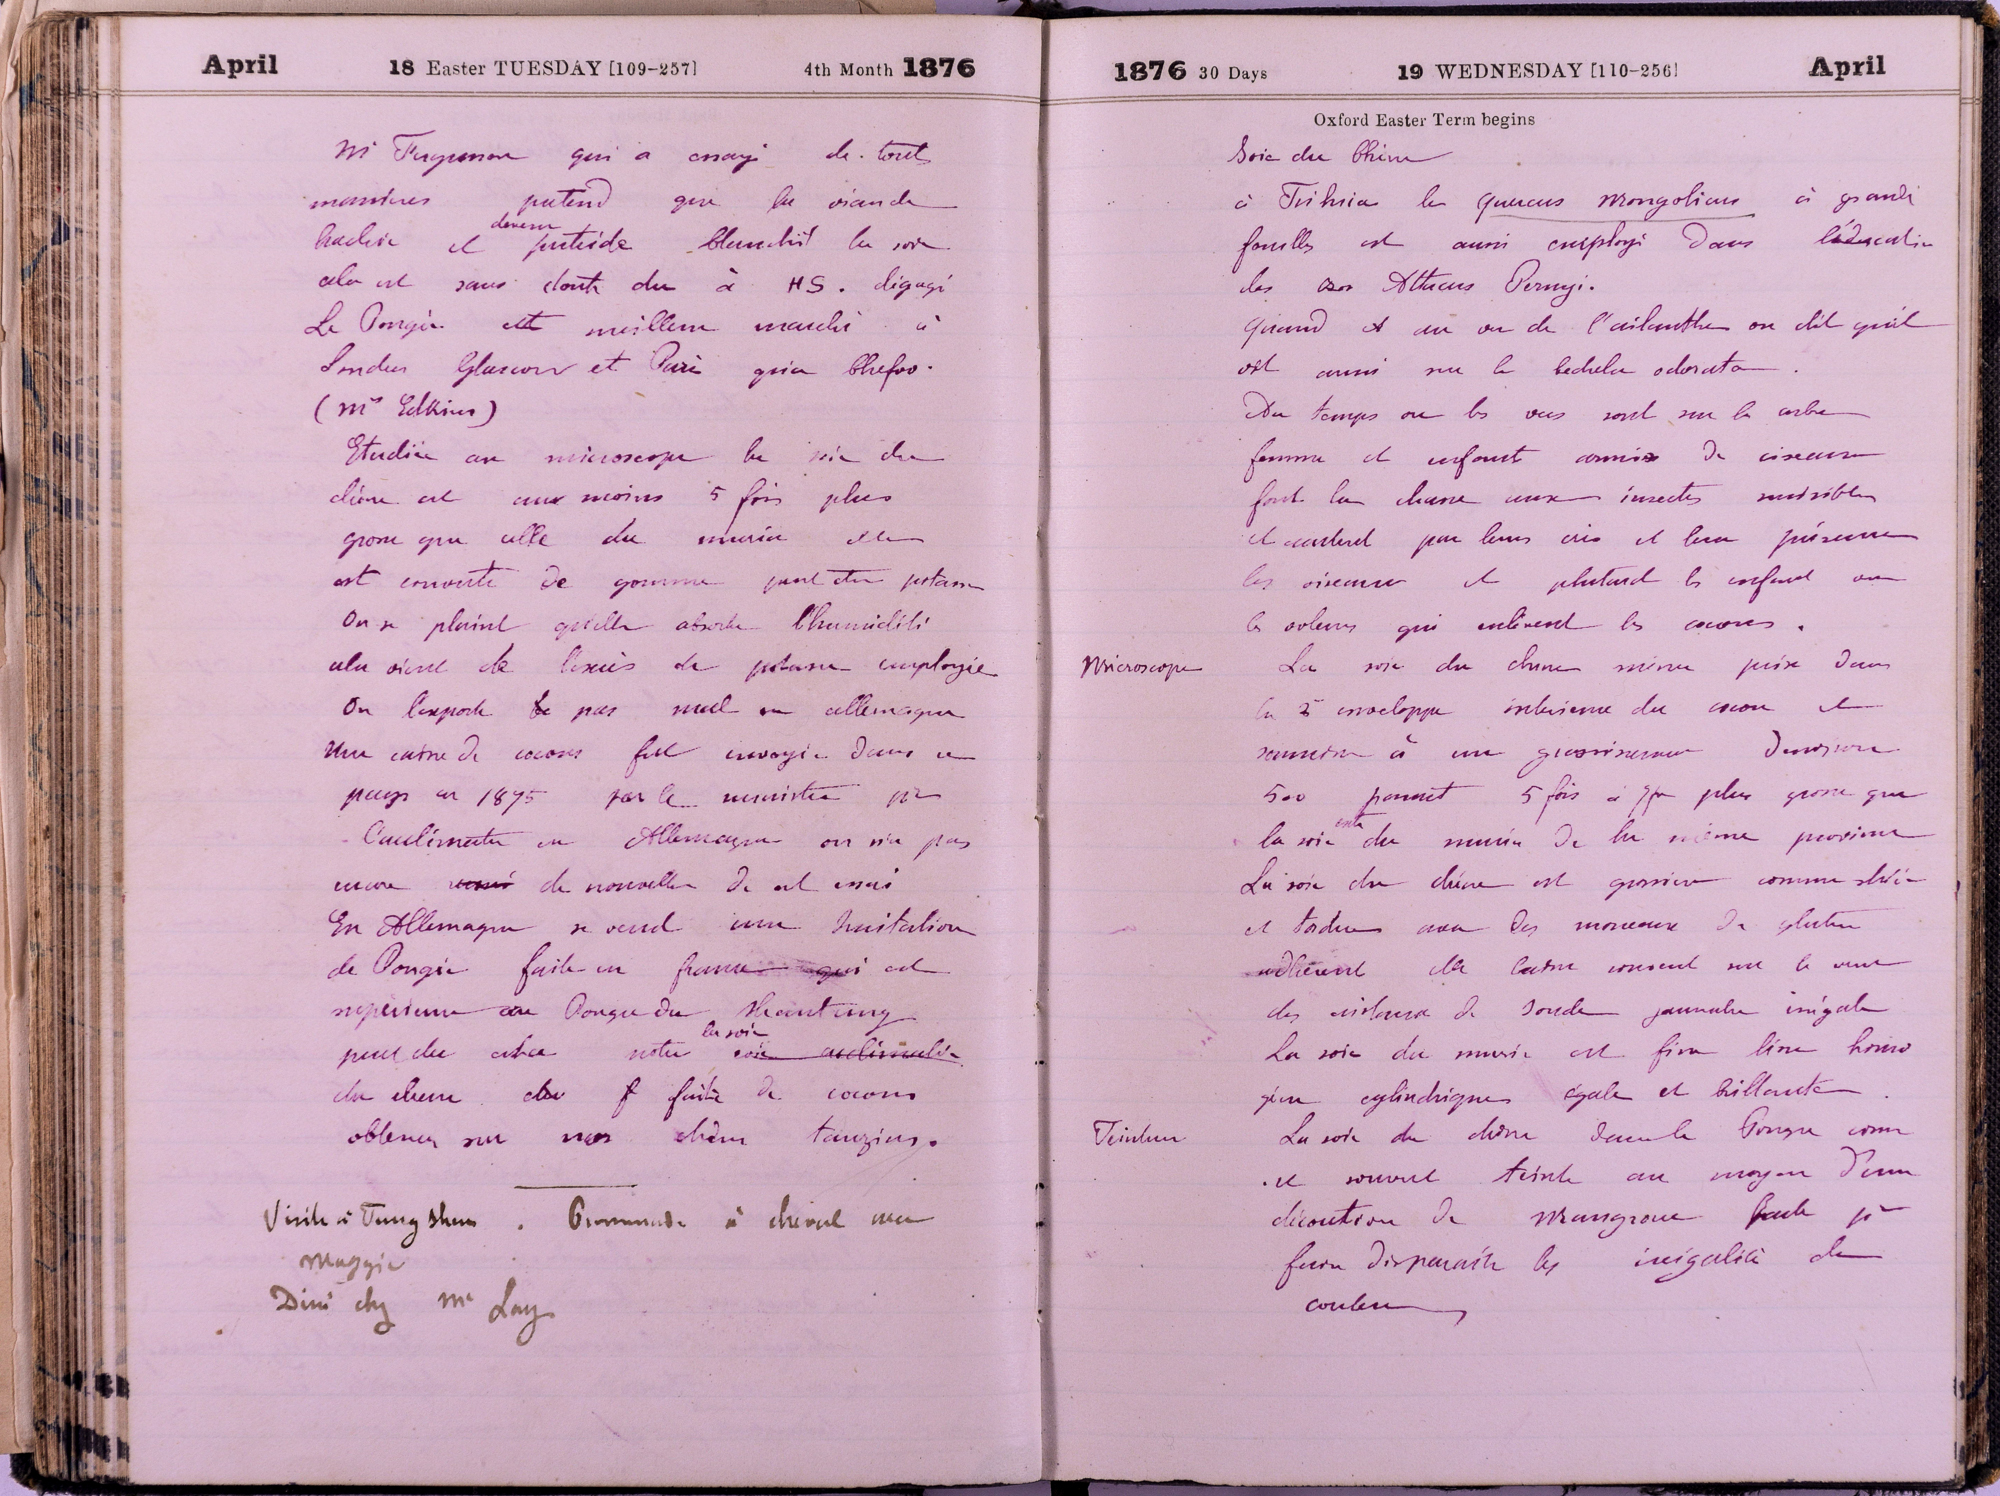 April 18 Easter TUESDAY [109-257] 4th Month 1876
Mr Fergusson qui a essayé de touts
manières pretend que la viande
hachée et devenue putride blanchit la soie
cela est sans doute du à HS. dégagé
Le Pongée est meilleur marché à
Londres Glascow et Paris qu'a Chefoo.
(Mrs Edkins)
Etudiée au microscope la soie du
chêne est aux moins 5 fois plus
grosse que celle du murier elle
est couverte de gomme peut etre potasse
On se plaint qu'elle absorbe l'humidité
cela vient de l'excès de potasse employée
On l'exporte pas mal en allemagne
Une caisse de cocons fut envoyée dans ce
pays en 1875 par le ministre pr
l'acclimater en Allemagne on n'a pas
encore de nouvelles de cet essai
En Allemagne se vend une Imitation
de Pongée faite en france qui est
superieure au Pongee du Shantung
peut etre notre la soie soie acclimatée
du chene faite de cocons
obtenus sur nos chêne tauzins.
Visite à Tung Shen . Promenade à cheval avec
Maggie
Diné chez Mr Lay
1876 30 Days 19 WEDNESDAY [110-256] April
Oxford Easter Term begins
Soie du Chêne
à Tsihsia le Quercus Mongolicus à grande
feuilles est aussi employé dans l'éducation
des Attacus Pernyi.
Quand et au ver de l'ailanthe on dit qu'il
vit aussi sur le Cedrela odorata .
Du temps ou les vers sont sur le arbre
femme et enfant armés de ciseaux
font la chasse aux insectes nuisibles
et ecartent par leurs cris et leur présence
les oiseaux et plutard les enfant ou
les voleurs qui enlèvent les cocons .
Microscope La soie du chene même prise dans
la 2e enveloppe interieure du cocon et
soumise à un grossissement d'environ
500 parait 5 fois à 7fs plus grosse que
la soie du murier de la même province
La soie du chêne est grossiere comme striée
et tordue avec des morceaux de gluten
adhérent
des cristaux de soude jaunatre inégale
La soie du murier est fine lisse homo
gène cylindrique égale et brillante .
Teinture La soie du chêne dans le Pongee
est souvent teinte au moyen d'une
décoction de Mangrove pr
faire disparaitre les inégalité de
couleur